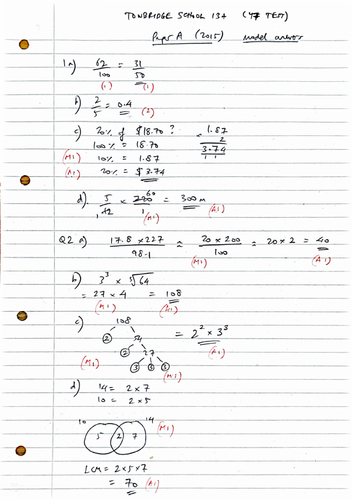 TONBRIDGE SCHOOL 13+ (Y7 TEST)
Paper A (2015) model answers
1a) 62/100 = 31/50
(1) (1)
b) 2/5 = 0.4 (2)
c) 20% of $18.70 ? 1.87
100% = 18.70 2
(M1) 10% = 1.87 3.74
(A1) 20% = $3.74 1 1
d) 5/12 × 720/1 = 300m (A1)
60
1 (M1)
Q2 a) 17.8 × 227 / 98.1 ≈ 20 × 200 / 100 = 20 × 2 = 40
(M1) (A1)
b) 3³ × ∛64
= 27 × 4 = 108
(M1) (A1)
c) 108 = 2² × 3³
2 54 (A1)
(M1) 2 27
3 3 3 (M1)
d) 14 = 2 × 7
10 = 2 × 5
10 14 (M1)
5 2 7
LCM = 2 × 5 × 7
= 70 (A1)